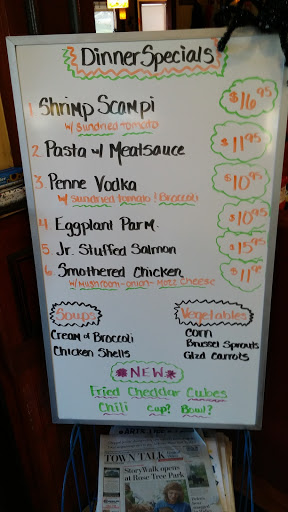 Dinner Specials
1. Shrimp Scampi $16.95
w/ sundried tomato
2. Pasta w/ Meatsauce $11.95
3. Penne Vodka $10.95
w/ sundried tomato & Broccoli
4. Eggplant Parm. $10.95
5. Jr. Stuffed Salmon $15.95
6. Smothered Chicken $11.95
w/ Mushroom-onion-Mozz Cheese
Soups
Cream of Broccoli
Chicken Shells
Vegetables
Corn
Brussel Sprouts
Glzd Carrots
*NEW*
Fried Cheddar Cubes
Chili cup? Bowl?
TOWN TALK
StoryWalk opens
at Rose Tree Park